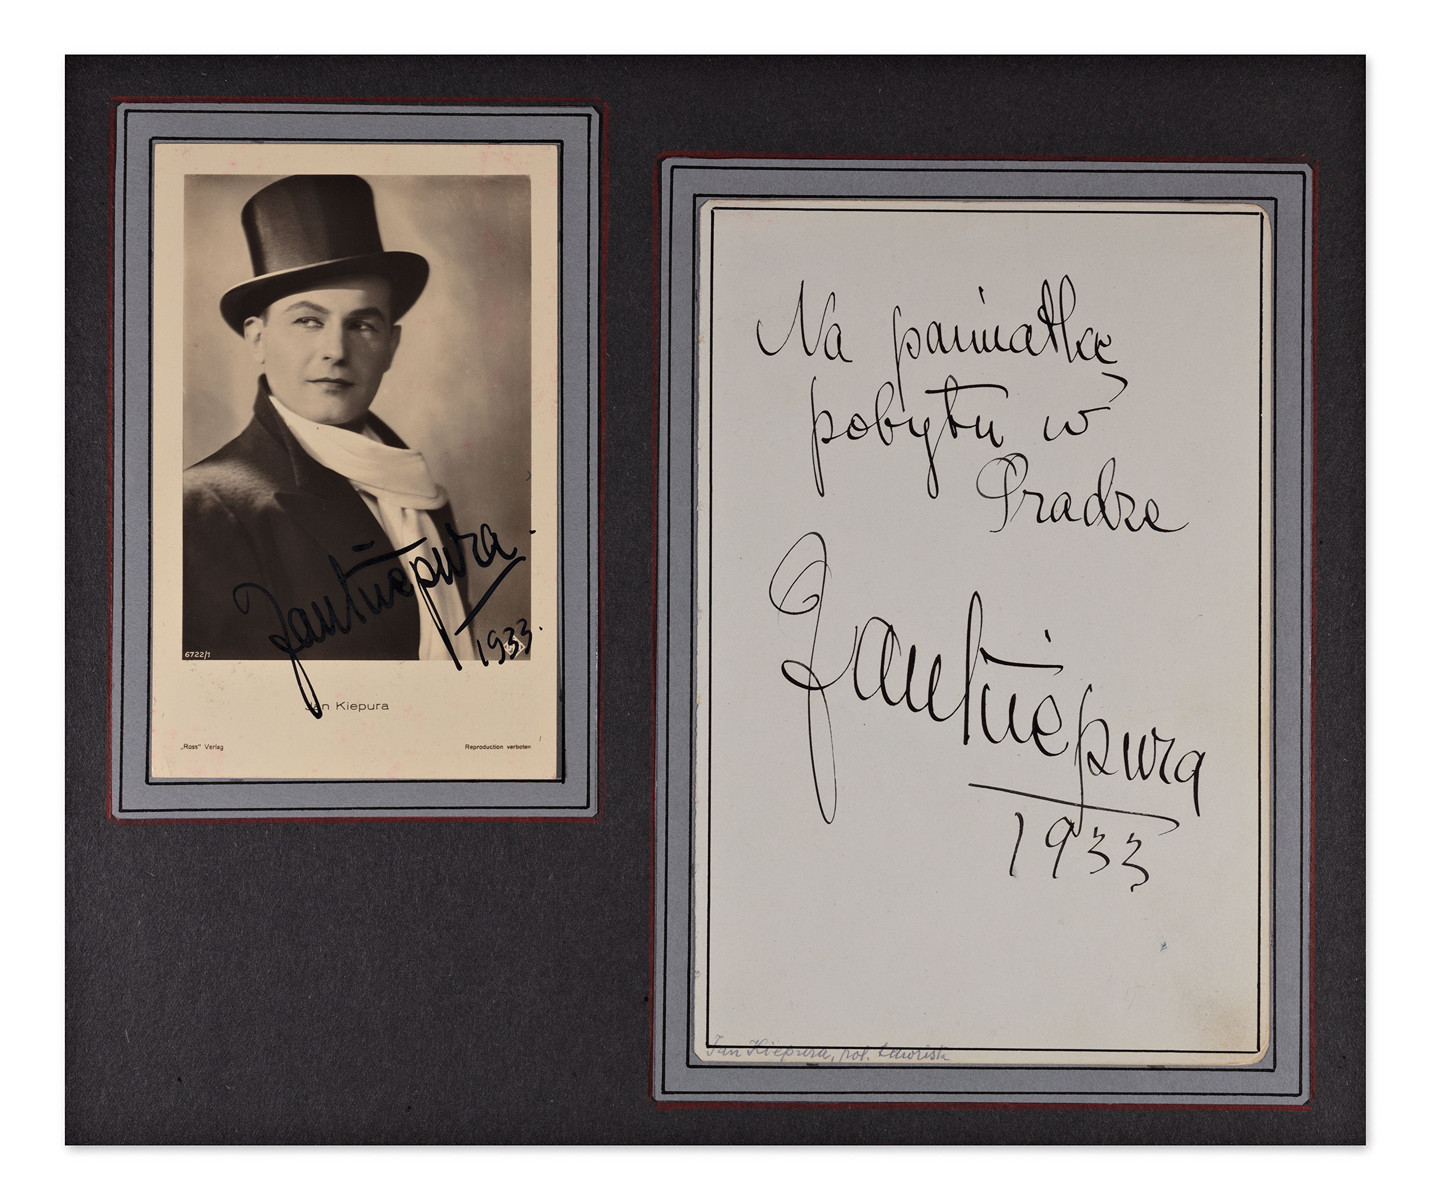 Jan Kiepura
1933.
6722/1
Jan Kiepura
„Ross" Verlag
Reproduction verboten
Na pamiatkę
pobytu w
Pradze
Jan Kiepura
1933
Jan Kiepura, pol. tenorista